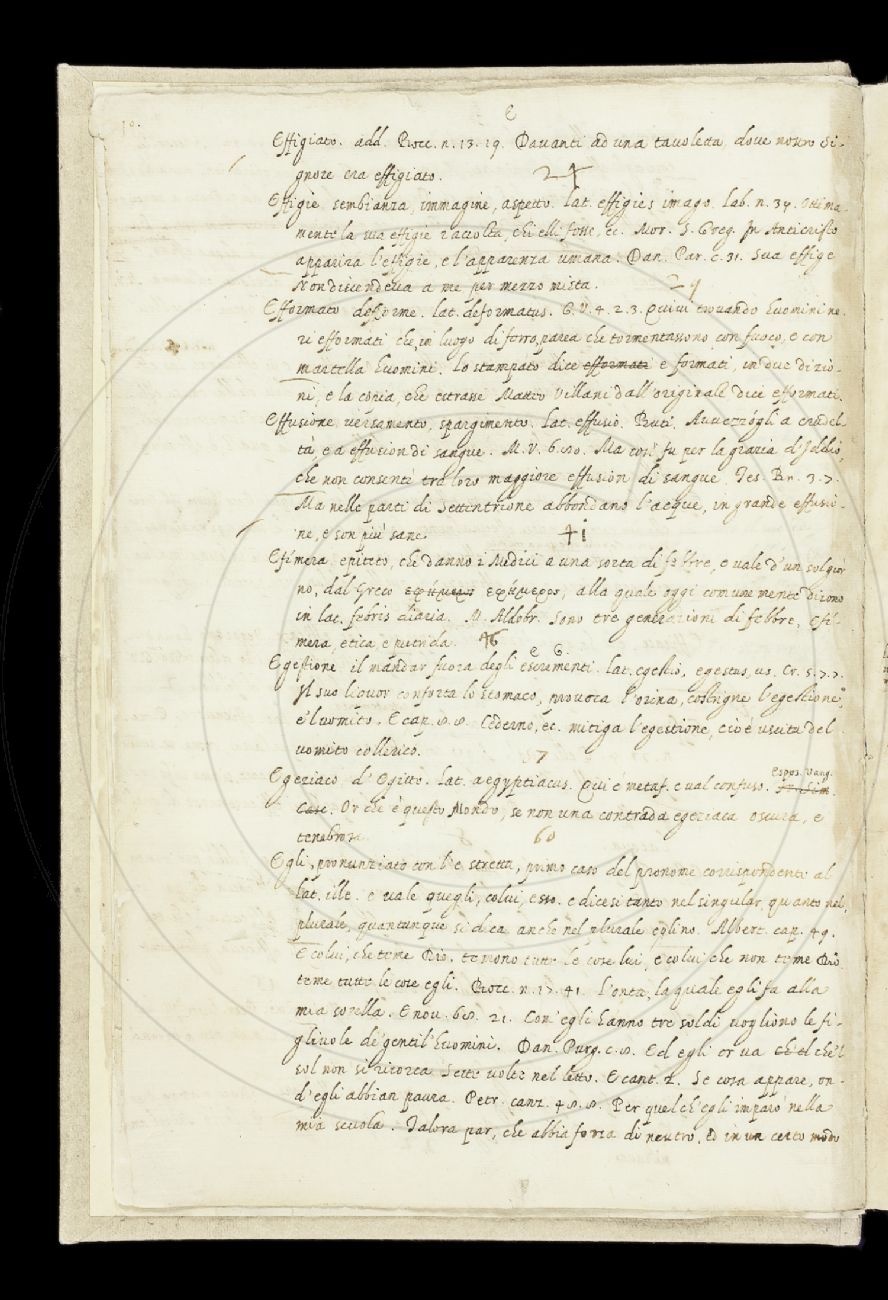 10.
E
Effigiato. add. Bocc. n. 13. 19. Davanti ad una tavoletta, dove nostro Si-
gnore era effigiato.
24
Effigie sembianza, immagine, aspetto. lat. effigies imago. Lab. n. 34. Ottima-
mente la effigie raccolta, chi elli fosse, ec. Mor. S. Greg. In Anticristo
apparirà l'effigie, e l'apparenza umana. Dan. Par. c. 31. Sua effige
Non discendeva a me per mezzo mista.
29
Efformato deforme. lat. deformatus. G. V. 4. 2. 3. Quivi trovando huomini ne-
ri efformati che, in luogo di ferro, parea che tormentassono con fuoco, e con
martella huomini. Lo stampato dice efformati e formati, in due dizio-
ni, e la copia, che estrasse Matteo Villani dall'originale dice efformati.
Effusione versamento, spargimento. Lat. effusio. Buti. Avvezzogli a crudel-
tà, e a effusion di sangue. M. V. 6. 80. Ma così fu per la grazia d'Iddio,
che non consentì tra loro maggiore effusion di sangue. Tes. Br. 3. 7.
Ma nelle parti di Settentrione abbondano l'acque, in grande effusio-
ne, e son più sane.
41
Efimera epiteto, che danno i Medici a una sorta di febbre, e vale d'un sol gior-
no, dal Greco εφήμερος, alla quale oggi comunemente dicono
in lat. febris diaria. M. Aldobr. Sono tre generazioni di febbre, efi-
mera, etica e putrida.
46
E G.
Egestione il mandar fuora degli escrementi. Lat. egestio, egestus, us. Cr. 5. 7. 7.
Il suo liquor conforta lo stomaco, provoca l'orina, costrigne l'egestione,
e 'l vomito. E cap. 8. 8. Cederno, ec. mitiga l'egestione, cioè uscita del
vomito collerico.
57
Egeziaco d'Egitto. Lat. aegyptiacus. Qui è metaf. e val confuso.
Espos. Vang.
Or che è questo Mondo, se non una contrada egeziaca oscura, e
tenebrosa.
60
Egli, pronunziato con l'e stretta, primo caso del pronome corrispondente al
lat. ille. e vale quegli, colui, esso. e dicesi tanto nel singular, quanto nel
plurale, quantunque si dica anche nel plurale eglino. Albert. cap. 49.
E colui, che teme Dio, temono tutte le cose lui, e colui che non teme Dio
teme tutte le cose egli. Bocc. n. 17. 41. L'onta, la quale egli fa alla
mia sorella. E nov. 68. 21. Con egli hanno tre soldi vogliono le fi-
gliuole de' gentil'huomini. Dan. Purg. c. 8. Ed egli or va che 'l
sol non si ricorca Sette volte nel letto. E cant. 2. Se cosa appare, on-
d'egli abbian paura. Petr. canz. 48. 8. Per quel ch'egli imparò nella
mia scuola. Talora par, che abbia forza di neutro, ed in un certo modo